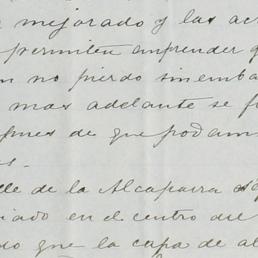 mejorado y las ac
permiten emprender
no pierdo sin emba
mas adelante se f
de que podam
s.
lle de la Alcaparra
iado en el centro del
do que la capa de al